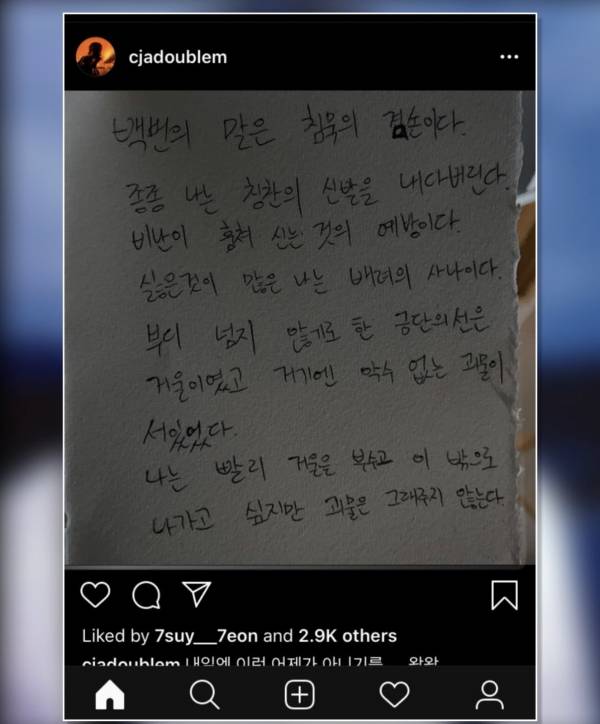 cjadoublem
백번의 말은 침묵의 겸손이다.
종종 나는 칭찬의 신발을 내다버린다.
비난이 훔쳐 신는 것의 예방이다.
싫은것이 많은 나는 배려의 사나이다.
부디 넘지 않기로 한 금단의선은
거울이였고 거기엔 악수 없는 괴물이
서있었다.
나는 빨리 거울을 부수고 이 밖으로
나가고 싶지만 괴물은 그래주지 않는다.
Liked by 7suy___7eon and 2.9K others
cjadoublem 내일엔 이런 어제가 아니기를